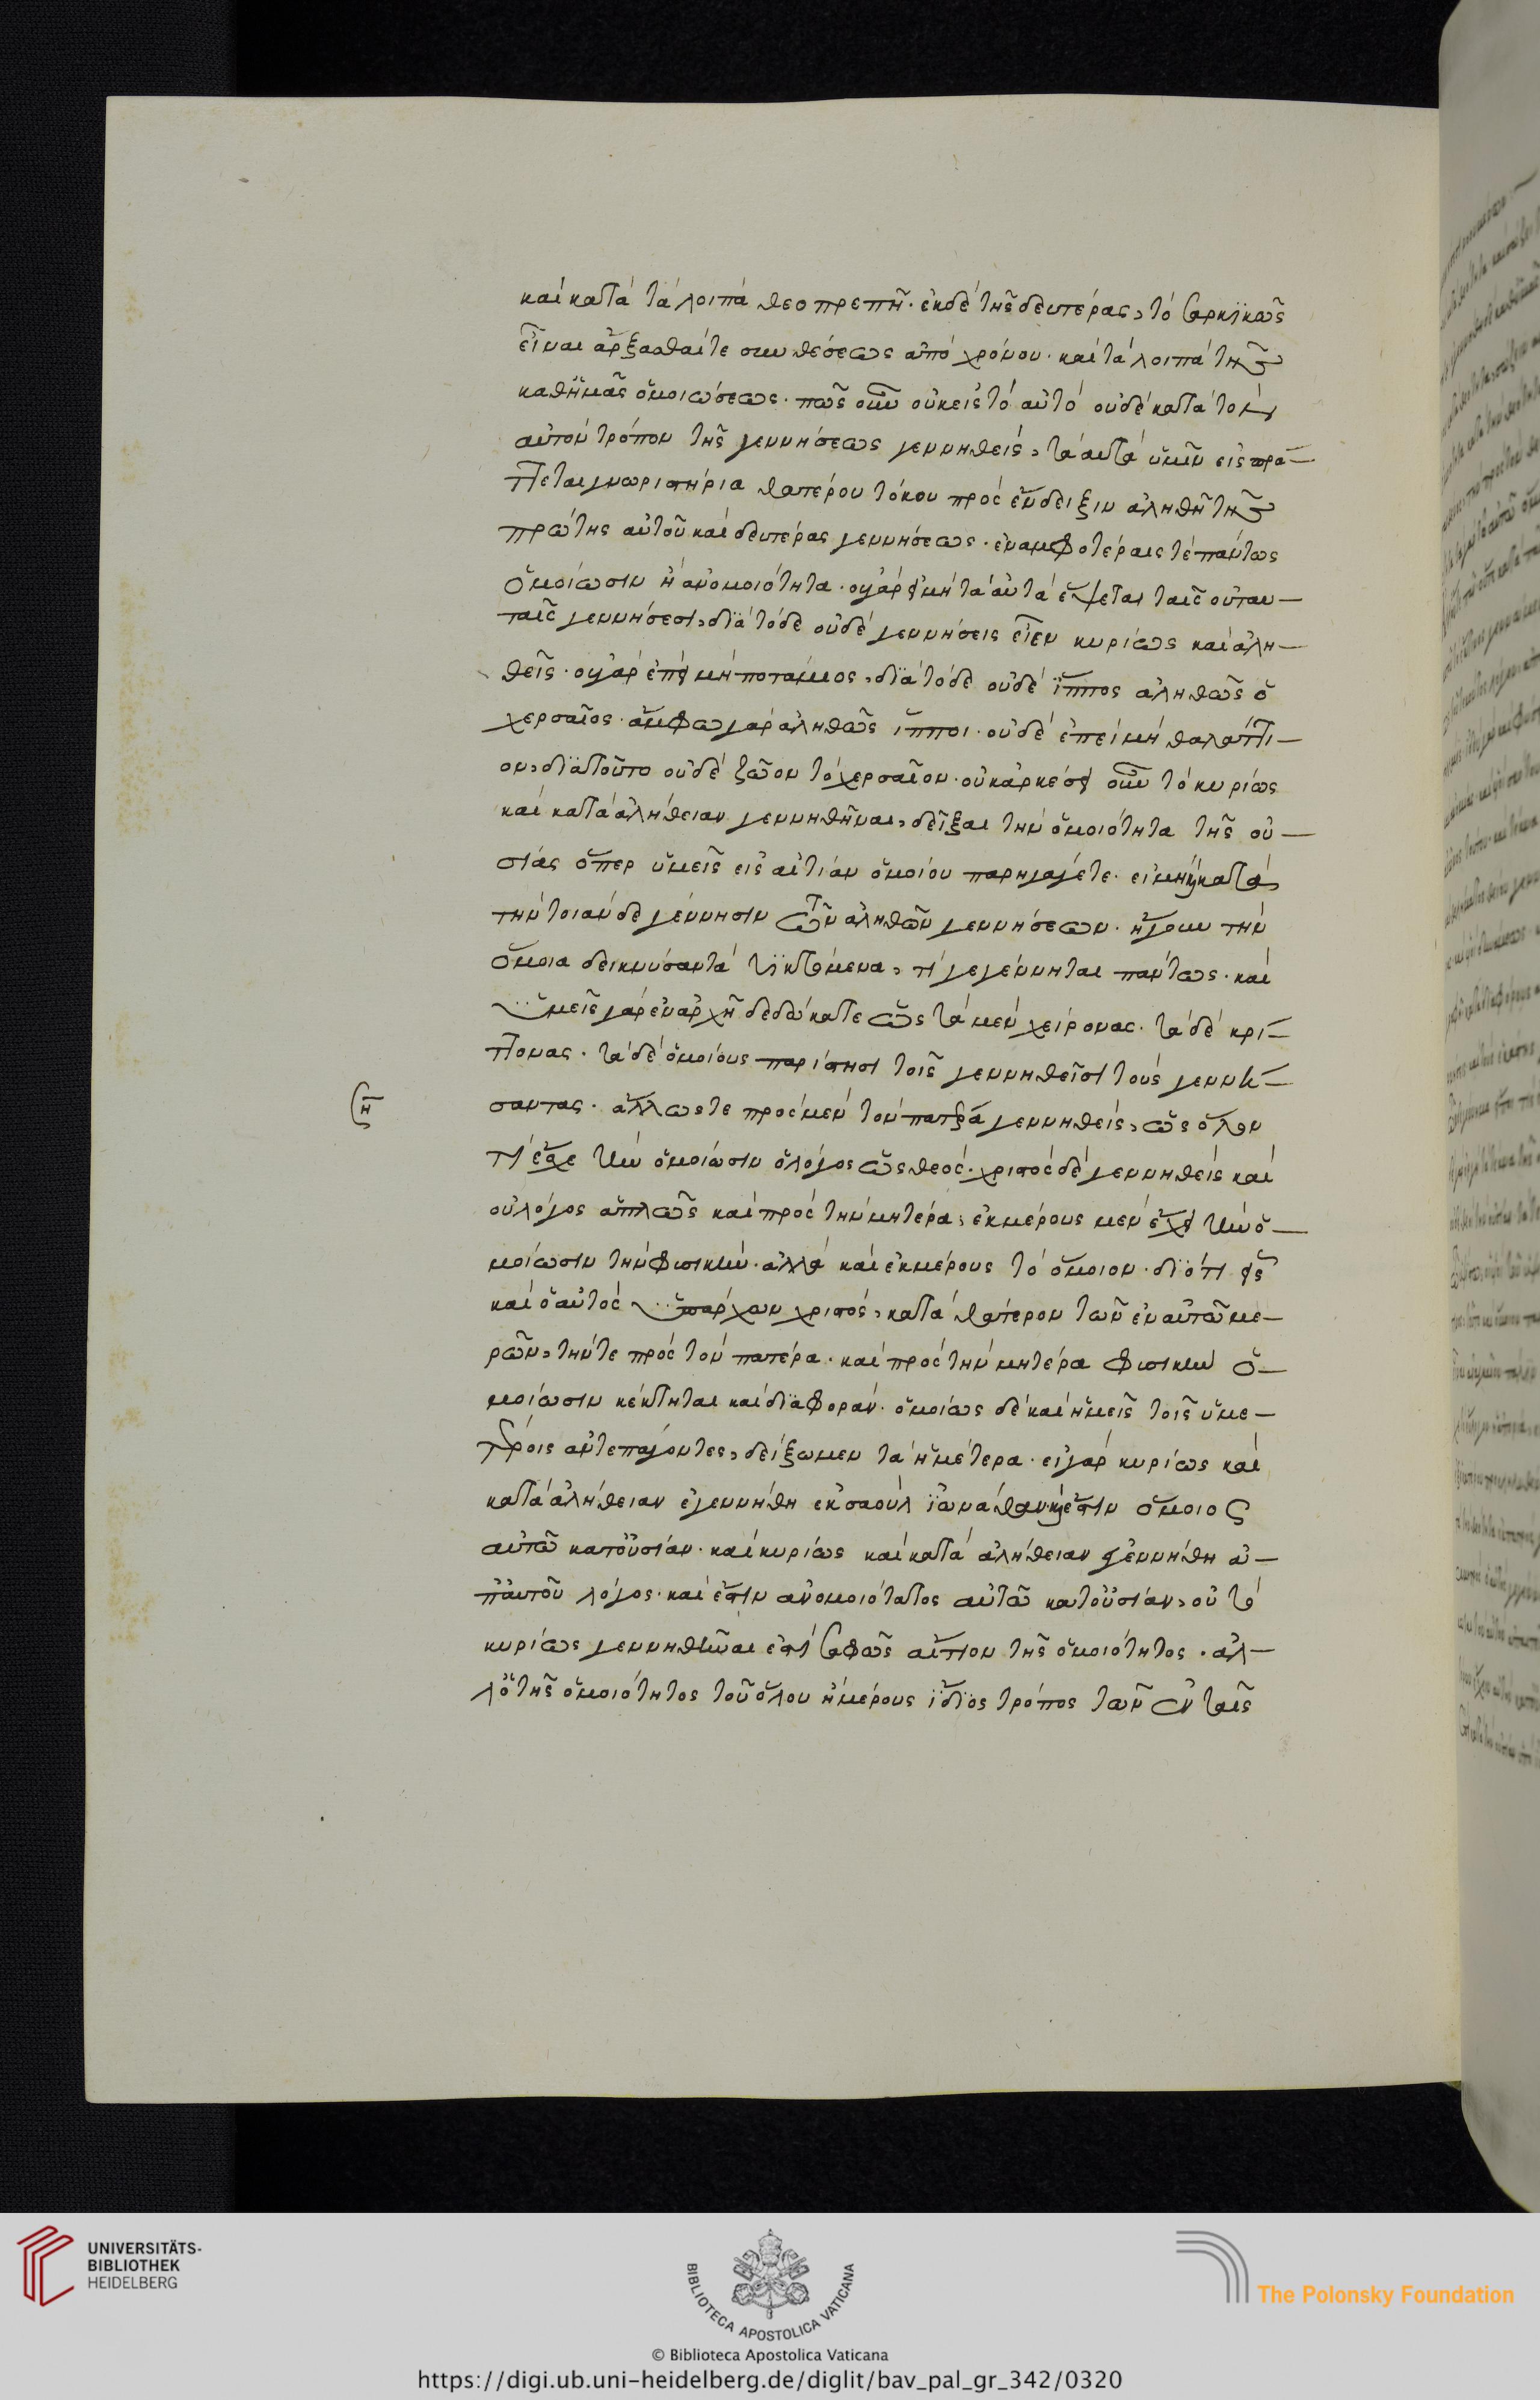 καὶ κατὰ τὰ λοιπὰ θεοπρεπῆ. ἐκ δὲ τῆς δευτέρας, τὸ σαρκικῶς
εἶναι ἄρξασθαί τε συνθέσεως ἀπὸ χρόνου. καὶ τὰ λοιπὰ τῆς
καθ' ἡμᾶς ὁμοιώσεως. πῶς οὖν οὐκ εἰς τὸ αὐτὸ οὐδὲ κατὰ τὸν
αὐτὸν τρόπον τῆς γεννήσεως γεννηθεὶς, τὰ αὐτὰ ὑμῖν εἰσπρά-
τεται γνωριστήρια θατέρου τόκου πρὸς ἔνδειξιν ἀληθῆ τῆς
πρώτης αὐτοῦ καὶ δευτέρας γεννήσεως. ἐν ἀμφοτέραις τὲ πάντως
ὁμοίωσιν ἢ ἀνομοιότητα. οὐ γὰρ εἰ μὴ τὰ αὐτὰ ἕψεται ταῖς οὐ ταυ-
ταῖς γεννήσεσι, διὰ τόδε οὐδὲ γεννήσεις εἶεν κυρίως καὶ ἀλη-
θεῖς. οὐ γὰρ ἐπεὶ μὴ ποτάμιος, διὰ τόδε οὐδὲ ἵππος ἀληθῶς ὁ
χερσαῖος. ἄμφω γὰρ ἀληθῶς ἵπποι. οὐδὲ ἐπεὶ μὴ θαλάττι-
ον, διὰ τοῦτο οὐδὲ ζῶον τὸ χερσαῖον. οὐκ ἀρκέσει οὖν τὸ κυρίως
καὶ κατὰ ἀλήθειαν γεννηθῆναι, δεῖξαι τὴν ὁμοιότητα τῆς οὐ-
σίας ὅπερ ὑμεῖς εἰς αἰτίαν ὁμοίου παρηγάγετε. εἰ μὴ καὶ κατὰ
τὴν τοιάνδε γέννησιν τῶν ἀληθῶν γεννήσεων. ἤγουν τὴν
ὅμοια δεικνύσαν τὰ τικτόμενα, τί γεγέννηται πάντως. καὶ
ὑμεῖς γὰρ ἐν ἀρχῇ δεδώκατε ὡς τὰ μὲν χείρονας. τὰ δὲ κρί-
τονας. τὰ δὲ ὁμοίους παρίστησι τοῖς γεννηθεῖσι τοὺς γεννή-
η
σαντας. ἄλλως τε πρὸς μὲν τὸν πατέρα γεννηθεὶς, ὡς ὅλον
τί ἔσχε τὴν ὁμοίωσιν ὁ λόγος ὡς θεός. χριστὸς δὲ γεννηθεὶς καὶ
οὐ λόγος ἁπλῶς καὶ πρὸς τὴν μητέρα, ἐκ μέρους μὲν ἔχει τὴν ὁ-
μοίωσιν τὴν φυσικήν. ἀλλὰ καὶ ἐκ μέρους τὸ ὅμοιον. διότι εἷς
καὶ ὁ αὐτὸς ὑπάρχων χριστὸς, κατὰ θάτερον τῶν ἐν αὐτῶ με-
ρῶν, τήν τε πρὸς τὸν πατέρα. καὶ πρὸς τὴν μητέρα φυσικὴν ὁ-
μοίωσιν κέκτηται καὶ διαφοράν. ὁμοίως δὲ καὶ ἡμεῖς τοῖς ὑμε-
τέροις ἀντεπάγοντες, δείξωμεν τὰ ἡμέτερα. εἰ γὰρ κυρίως καὶ
κατὰ ἀλήθειαν ἐγεννήθη ἐκ σαοὺλ ἰωνάθαν καὶ ἔστιν ὅμοιος
αὐτῶ κατ' οὐσίαν. καὶ κυρίως καὶ κατὰ ἀλήθειαν ἐγεννήθη ἀ-
π' αὐτοῦ λόγος. καὶ ἔστιν ἀνομοιότατος αὐτῶ κατ' οὐσίαν, οὐ τὸ
κυρίως γεννηθῆναι ἐστὶ σαφῶς αἴτιον τῆς ὁμοιότητος. ἀλ-
λ' ὁ τῆς ὁμοιότητος τοῦ ὅλου ἢ μέρους ἴδιος τρόπος τῶν ἐν ταῖς
UNIVERSITÄTS-
BIBLIOTHEK
HEIDELBERG
BIBLIOTECA APOSTOLICA VATICANA
The Polonsky Foundation
© Biblioteca Apostolica Vaticana
https://digi.ub.uni-heidelberg.de/diglit/bav_pal_gr_342/0320